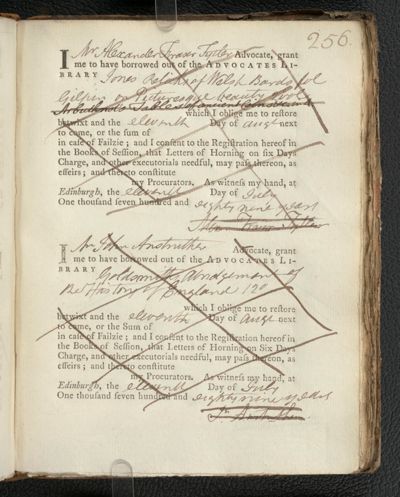 256.
I Mr Alexander Fraser Tytler Advocate, grant
me to have borrowed out of the ADVOCATES LI-
BRARY Jones Relicks of Welsh Bards fol
Gilpin on Picturesque beauty 2 vol
which I oblige me to restore
betwixt and the eleventh Day of augt next
to come, or the sum of
in case of Failzie; and I consent to the Registration hereof in
the Books of Session, that Letters of Horning on six Days
Charge, and other executorials needful, may pass thereon, as
effeirs; and thereto constitute
my Procurators. As witness my hand, at
Edinburgh, the eleventh Day of July
One thousand seven hundred and eighty nine years
Alexr Fraser Tytler
I Mr John Anstruther Advocate, grant
me to have borrowed out of the ADVOCATES LI-
BRARY Goldsmiths Abridgement of
the History of England 12o
which I oblige me to restore
betwixt and the eleventh Day of augt next
to come, or the Sum of
in case of Failzie; and I consent to the Registration hereof in
the Books of Session, that Letters of Horning on Six Days
Charge, and other executorials needful, may pass thereon, as
effeirs; and thereto constitute
my Procurators. As witness my hand, at
Edinburgh, the eleventh Day of July
One thousand seven hundred and eighty nine years
Jn Anstruther